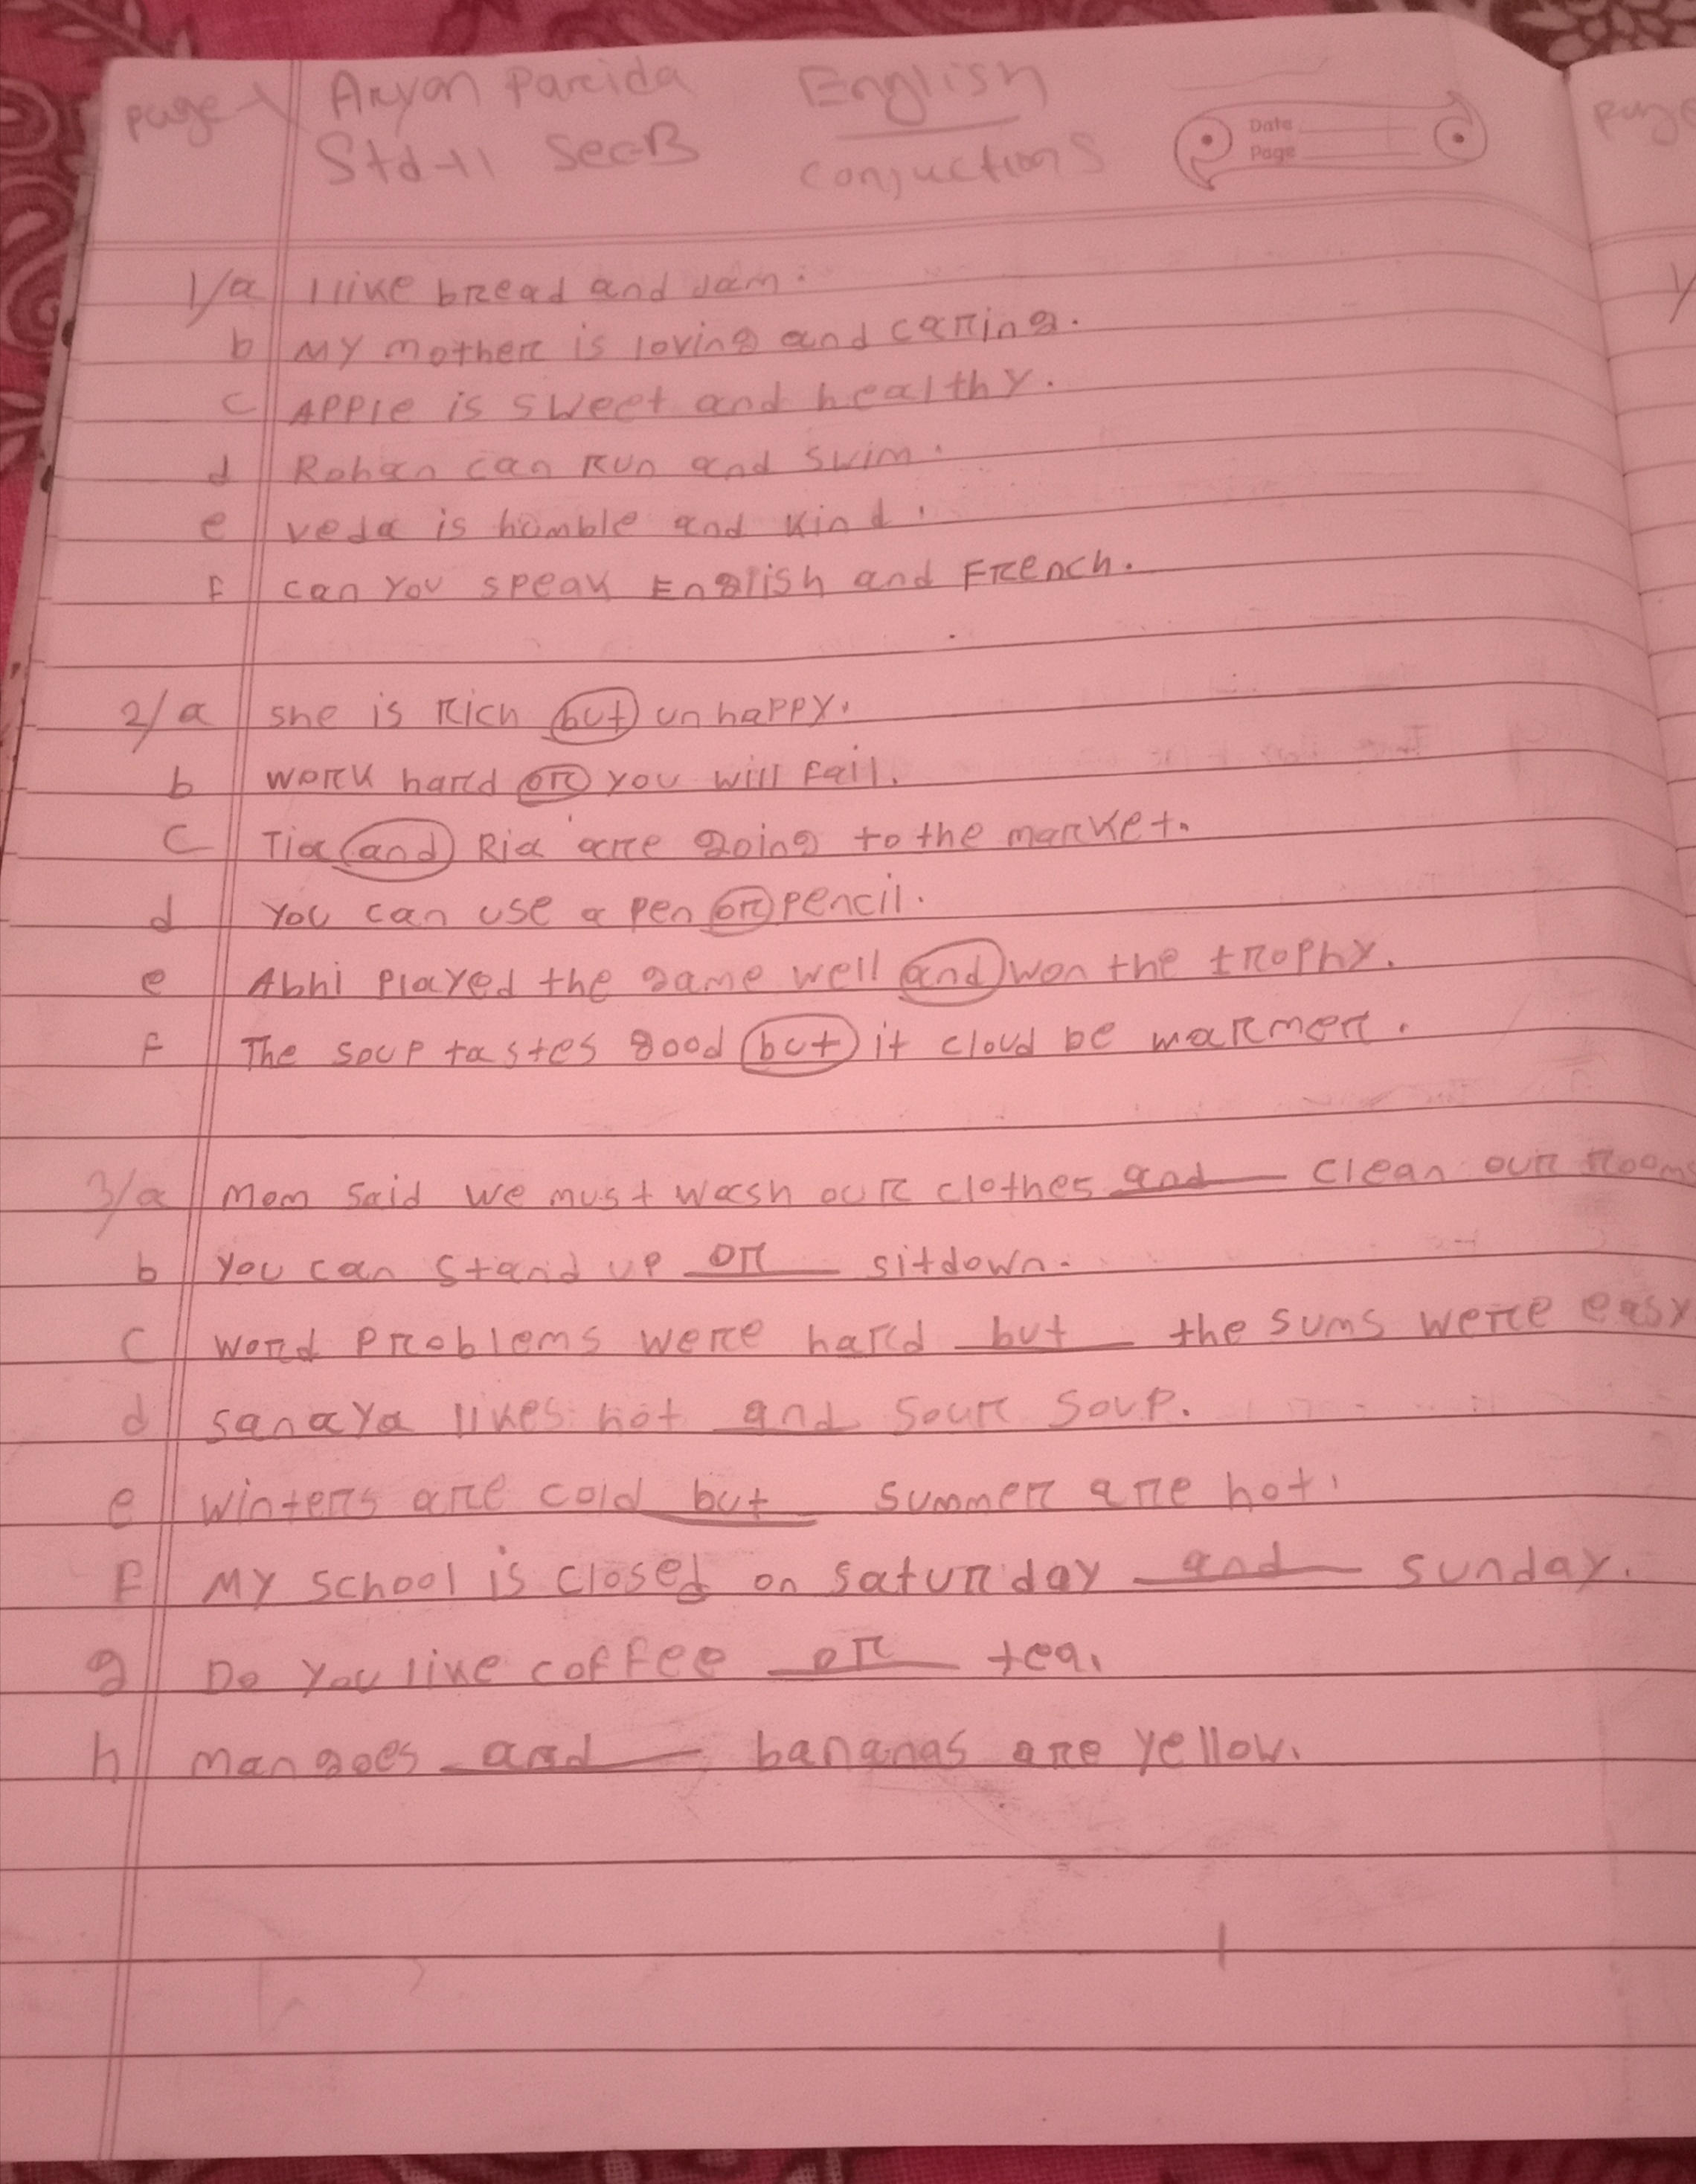 page 1 Aryan Parida English
Std-II Sec-B conjuctions
Date
Page
page
1/a I like bread and Jam.
b MY mother is loving and carring.
c APPle is sweet and healthy.
d Rohan can Run and swim.
e veda is humble and kind.
f can You speak English and French.
2/a she is Rich but unhappy.
b work hard or you will fail.
c Tia and Ria are going to the market.
d You can use a pen or pencil.
e Abhi Played the game well and won the trophy.
f The soup tastes good but it cloud be warmer.
3/a Mom said we must wash our clothes and clean our rooms
b You can stand up or sitdown.
c word Problems were hard but the sums were easy
d sanaya likes hot and sour soup.
e winters are cold but summer are hot.
f MY school is closed on saturday and sunday.
g Do You like coffee or tea.
h mangoes and bananas are yellow.